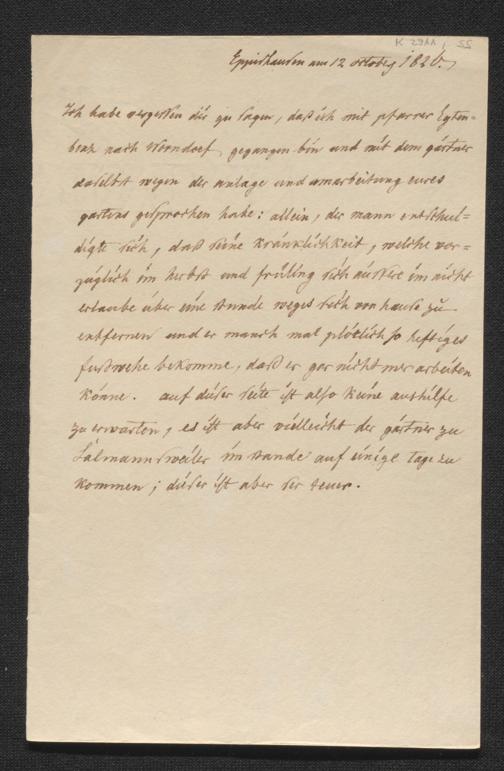 K 2911, 55
Eppishausen am 12 october 1820.
Ich habe vergessen dir zu sagen, daß ich mit pfarrer Egten-
nach Worndorf gegangen bin und mit dem gärtner
daselbst wegen der anlage und umarbeitung eures
gartens gesprochen habe: allein, der mann entschul=
digte sich, daß seine kränklichkeit, welche vor=
züglich im herbst und früling sich äussere im nicht
erlaube über eine stunde weges sich von hause zu
entfernen und er manch mal plötzlich so heftiges
fuswehe bekomme, daß er gar nicht mer arbeiten
könne. auf dieser seite ist also keine aushilfe
zu erwarten, es ist aber vielleicht der gärtner zu
Salmannsweiler im stande auf einige tage zu
kommen; dieser ist aber ser teuer.